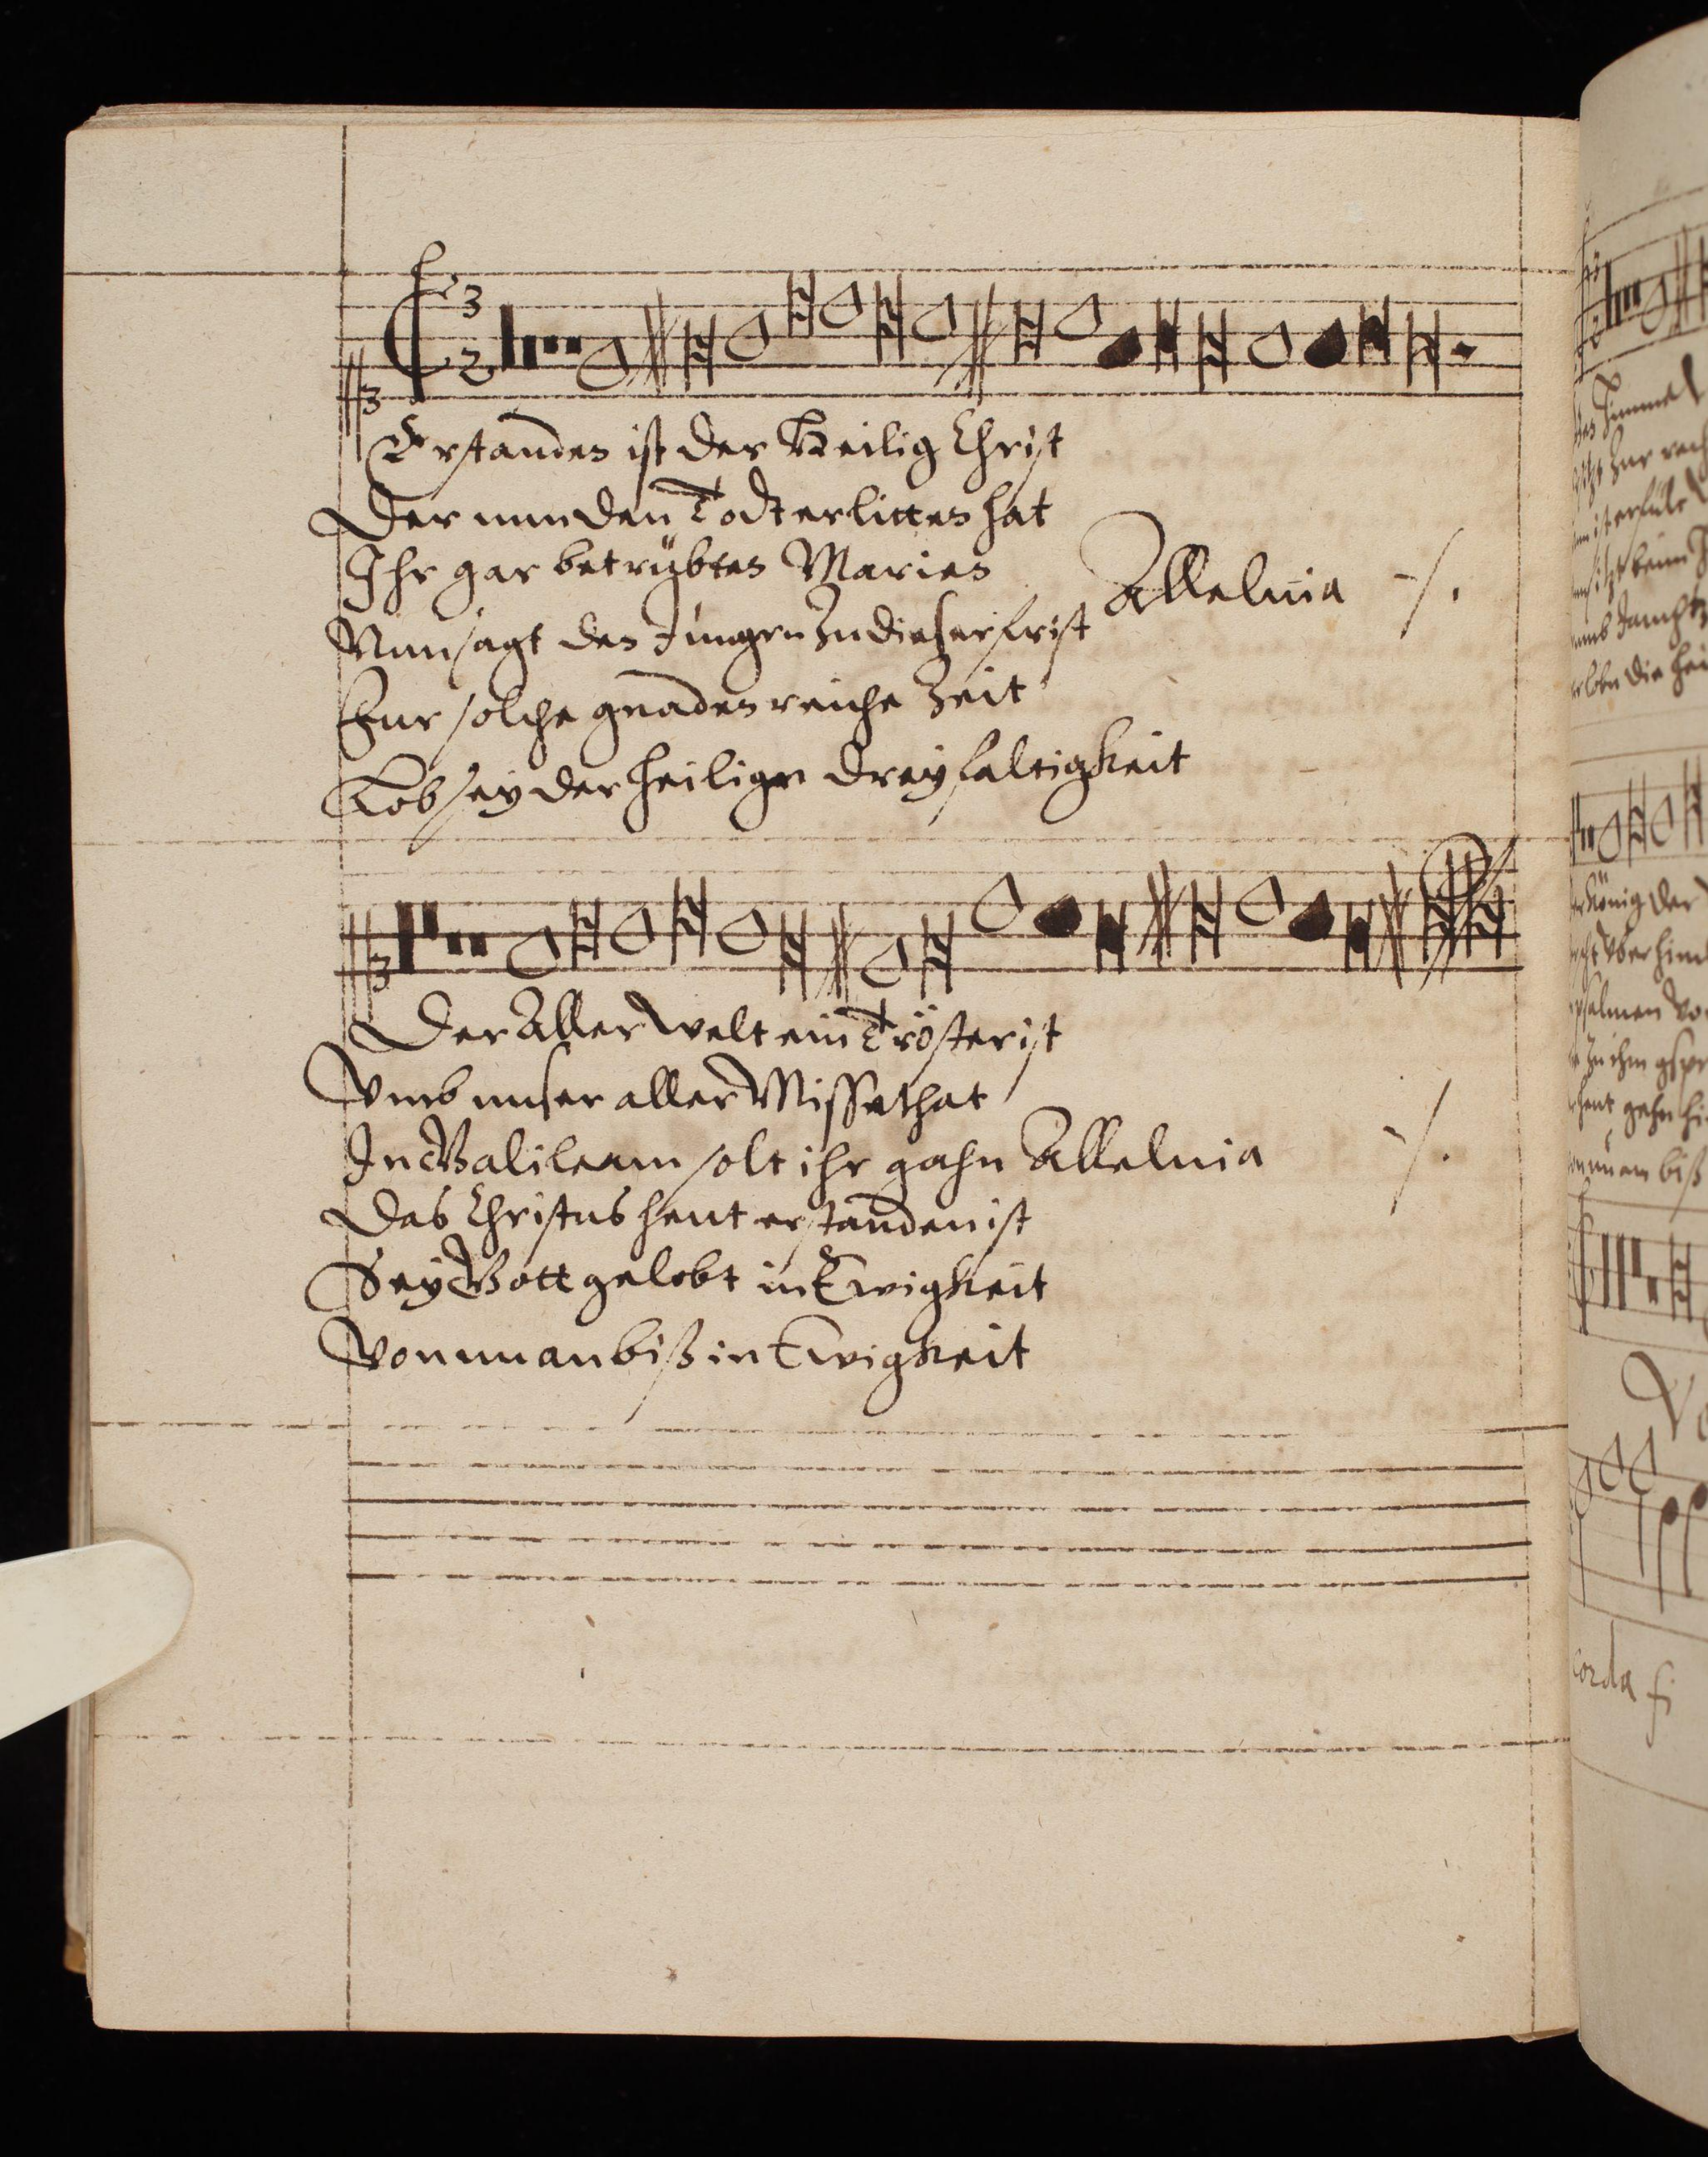 3
2
Erstanden ist der Heilig Christ
Der nun den Todt erlitten hat
Ihr gar betrübten Marien
Alleluia ·/.
Nun sagt den Jungrn Zu dieser frist
Fur solche gnadenreiche Zeit
Lob sey der heiligen dreyfaltigkeit
Der Aller welt ein Tröster ist
Vmb unser aller Missethat
In Galileam solt ihr gahn Alleluia ·/.
Das Christus heut erstanden ist
Sey Gott gelobt in Ewigkeit
Von nun an biß in Ewigkeit
corda